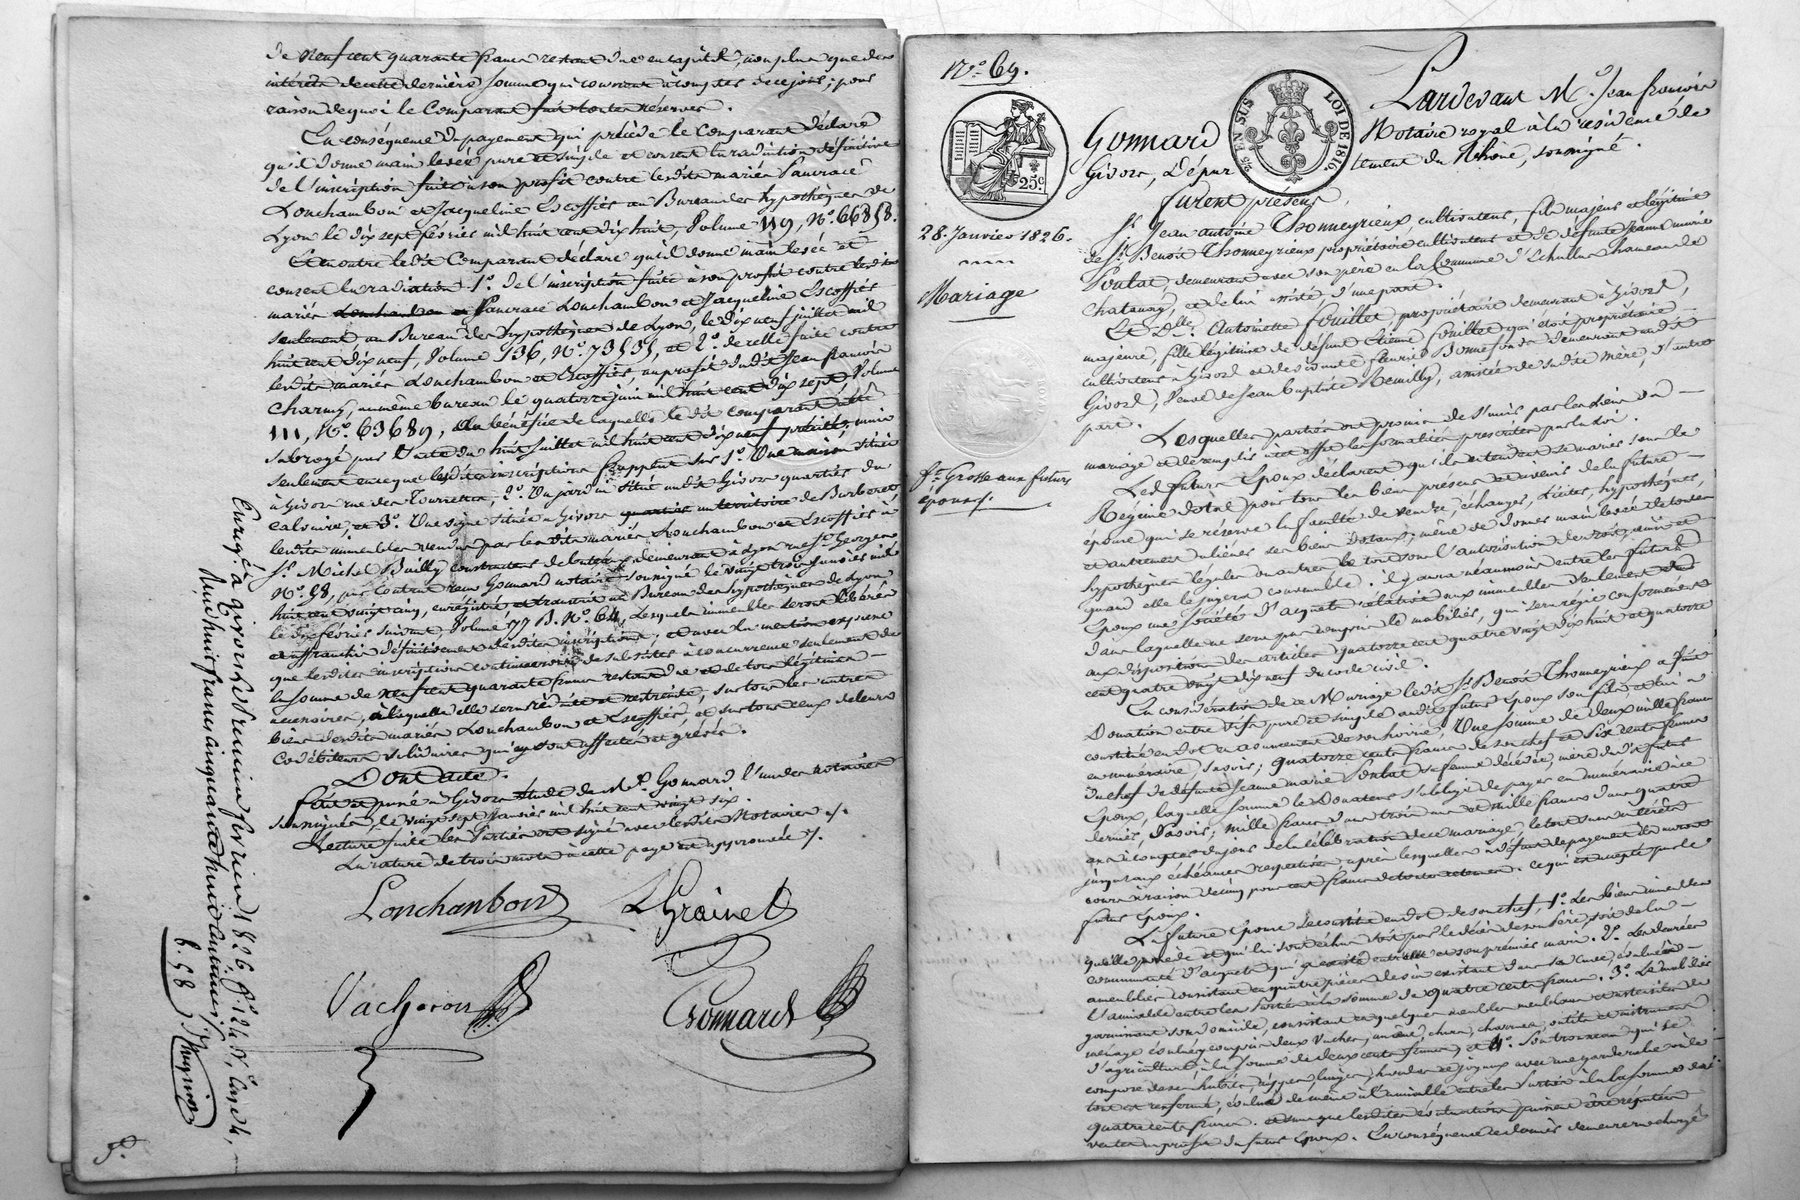 de neuf cent quarante francs restant due en capital, non plus que des
intérêts de cette dernière somme qui courront à compter de ce jour; pour
raison de quoi le Comparant fait toutes réserves.
En conséquence du payement qui précède le Comparant déclare
qu'il donne main levée pure et simple et consent la radiation définitive
de l'inscription faite à son profit contre lesdits mariés Pancrace
Lonchambon et Jacqueline Escoffier au Bureau des hypothèques de
Lyon le dix sept février mil huit cent dix huit, Volume 119, N°. 66858.
Et en outre ledit Comparant déclare qu'il donne main levée et
consent la radiation 1°. de l'inscription faite à son profit contre lesdits
mariés Pancrace Lonchambon et Jacqueline Escoffier
seulement au Bureau des hypothèques de Lyon, le dix neuf juillet mil
huit cent dix neuf, Volume 136, N°. 73535, et 2°. de celle faite contre
lesdits mariés Lonchambon et Escoffier au profit dudit Jean francois
Charmy, au même bureau le quatorze juin mil huit cent dix sept, Volume
111, N°. 63689, au bénéfice de laquelle le dit comparant a été
subrogé par l'acte du huit juillet mil huit cent dix neuf précité; mais
seulement en ce que lesdites inscriptions frappent sur 1°. Une maison située
à Givors rue des Tourettes, 2°. Un jardin situé audit Givors quartier du
calvaire, et 3°. Une vigne située à Givors territoire de Barberet
lesdits immeubles vendus par lesdits mariés Lonchambon et Escoffier à
Sr. Michel Bailly constructeur de bateaux, demeurant à Lyon rue St. Georges
N°. 98, par contrat reçu Gonnard notaire soussigné le vingt trois janvier mil
huit cent vingt cinq, enregistré et transcrit au Bureau des hypothèques de Lyon
le dix février suivant, Volume 77 B. N°. 64, lesquels immeubles seront libérés
et affranchis définitivement desdites inscriptions; et avec la mention expresse
que lesdites inscriptions continueront de subsister à concurrence seulement de
la somme de neuf cent quarante francs restant due et de tous légitimes
accessoires, à laquelle elle sera réduite et restreinte, sur tous les autres
biens desdits mariés Lonchambon et Escoffier, et sur tous ceux de leurs
Codébiteurs solidaires qui en sont affectés et grevés.
Dont acte.
fait et passé à Givors étude de Me. Gonnard l'un des notaires
soussignés, le vingt sept janvier mil huit cent vingt six.
Lecture faite les Parties ont signé avec lesdits Notaires /.
La rature de trois mots à cette page est approuvée /.
Lonchambon
Grainet
Vacheron
Gonnard
Enregé. à Givors le premier février 1826 f°. 124
Reçu huit francs cinquante huit centimes
8.58
5°.
N°. 69.
25 EN SUS
LOI DE 1816
25c
28. Janvier 1826.
Mariage
fe. Grosse aux futurs
époux /.
Pardevant Me. Jean francois
Gonnard Notaire royal à la résidence de
Givors, Département du Rhône, soussigné.
furent présens,
Sr. Jean antoine Thonneyrieux, cultivateur, fils majeur et légitime
de Sr. Benoît Thonneyrieux propriétaire cultivateur et de défunte Jeanne marie
Poulat, demeurant avec son père en la Commune d'Echallas hameau de
Chatanay, et de lui assisté, d'une part.
Et Dlle. Antoinette fouillet propriétaire demeurant à Givors,
majeure, fille légitime de défunt Etienne fouillet qui étoit propriétaire
cultivateur à Givors et de vivante fleurie Bonnefond demeurant audit
Givors, Veuve de Jean baptiste Remilly, assistée de sadite Mère, d'autre
part.
Lesquelles parties ont promis de s'unir par les liens du
mariage et de remplir à cet effet les formalités prescrites par la loi.
Les futurs Epoux déclarent qu'ils entendent se marier sous le
Régime dotal pour tous les biens présens et à venir de la future
épouse qui se réserve la faculté de vendre, échanger, liciter, hypothéquer,
et autrement aliéner ses biens dotaux; même de donner main levée de toutes
hypothèques légales ou autres le tout sous l'autorisation de son mari et
quand elle le jugera convenable. il y aura néanmoins entre les futurs
Epoux une société d'acquets relative aux immeubles seulement et
dans laquelle ne sera pas compris le mobilier, qui sera régie conformément
aux dispositions des articles quatorze cent quatre vingt dix huit et quatorze
cent quatre vingt dix neuf du code civil.
En considération de ce Mariage ledit Sr. Benoît Thonneyrieux a fait
Donation entre vifs pure et simple audit futur Epoux son fils et lui a
constitué en dot en avancement de son hoirie, Une somme de deux mille francs
en numéraire, savoir; quatorze cents francs de son chef et six cents francs
du chef de défunte Jeanne marie Poulat sa femme décédée, mère dudit futur
Epoux, laquelle somme le Donateur s'oblige de payer en numéraire à ce
dernier, savoir; mille francs dans trois ans et mille francs dans quatre
ans à compter du jour de la célébration de ce mariage, le tout sans intérêts
jusqu'aux échéances respectives après lesquelles à défaut de payement ils auront
cours à raison de cinq pour cent francs de toutes retenues. Ce qui est accepté par le
futur Epoux.
La future Epouse se constitue en dot de son chef, 1°. Les biens immeubles
qu'elle possède et qui lui sont échus soit par le décès de son Père, soit de la
communauté d'acquets qui a existé entr'elle et son premier mari. 2°. Les denrées
ameublies consistant en quatre pièces de vin existant dans sa cave, évaluées
à l'amiable entre les parties à la somme de quatre cents francs. 3°. Le mobilier
garnissant son domicile, consistant en quelques meubles meublans et ustensiles de
ménage évalués, y compris deux vaches, un âne, chars, charrues, outils et instrumens
d'agriculture, à la somme de deux cents francs, et 4°. Son trousseau qui se
compose de ses habits, nippes, linges, hardes et joyaux avec une garderobe où le
tout est renfermé, évalué de même à l'amiable entre les Parties à la somme de
quatre cents francs. et sans que lesdites évaluations puissent être réputées
ventes au profit du futur Epoux. En conséquence ce dernier demeurera chargé